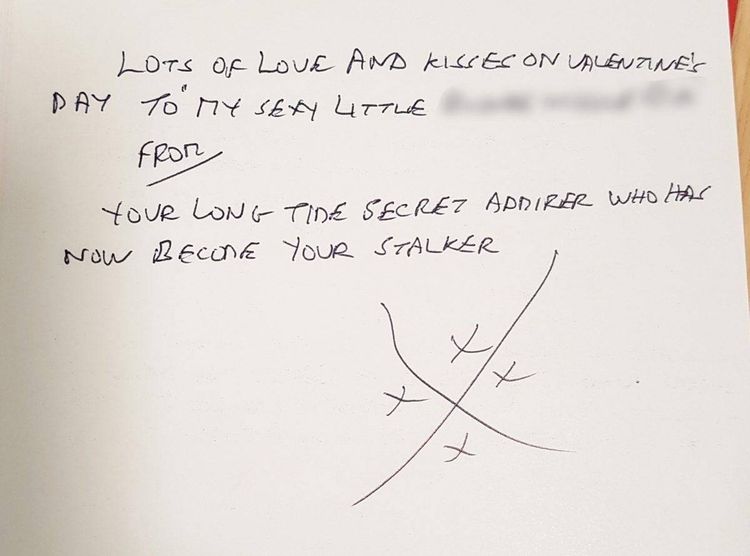 LOTS OF LOVE AND KISSES ON VALENTINE'S
DAY TO MY SEXY LITTLE
FROM
YOUR LONG TIME SECRET ADMIRER WHO HAS
NOW BECOME YOUR STALKER
X
X
X
X
X